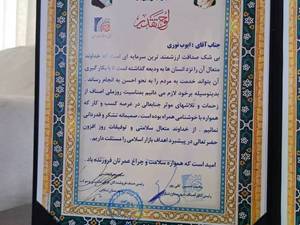 لوح تقدیر
جناب آقای : ایوب نوری
بی شک صداقت ارزشمند ترین سرمایه ای است که خداوند
متعال آن را نزد انسان ها به ودیعه گذاشته است تا با بکار گیری
آن بتواند خدمت به مردم را به نحو احسن به انجام رساند .
بدینوسیله برخود لازم می دانیم بمناسبت روز ملی اصناف از
زحمات و تلاشهای موثر جنابعالی در عرصه کسب و کار که
همواره با خوشنامی همراه بوده است ، صمیمانه تشکر و قدردانی
نمائیم . از خداوند متعال سلامتی و توفیقات روز افزون
حضرتعالی در پیشبرد اهداف بازار اسلامی را مسئلت داریم.
امید است که همواره سلامت و چراغ عمرتان فروزنده باد.